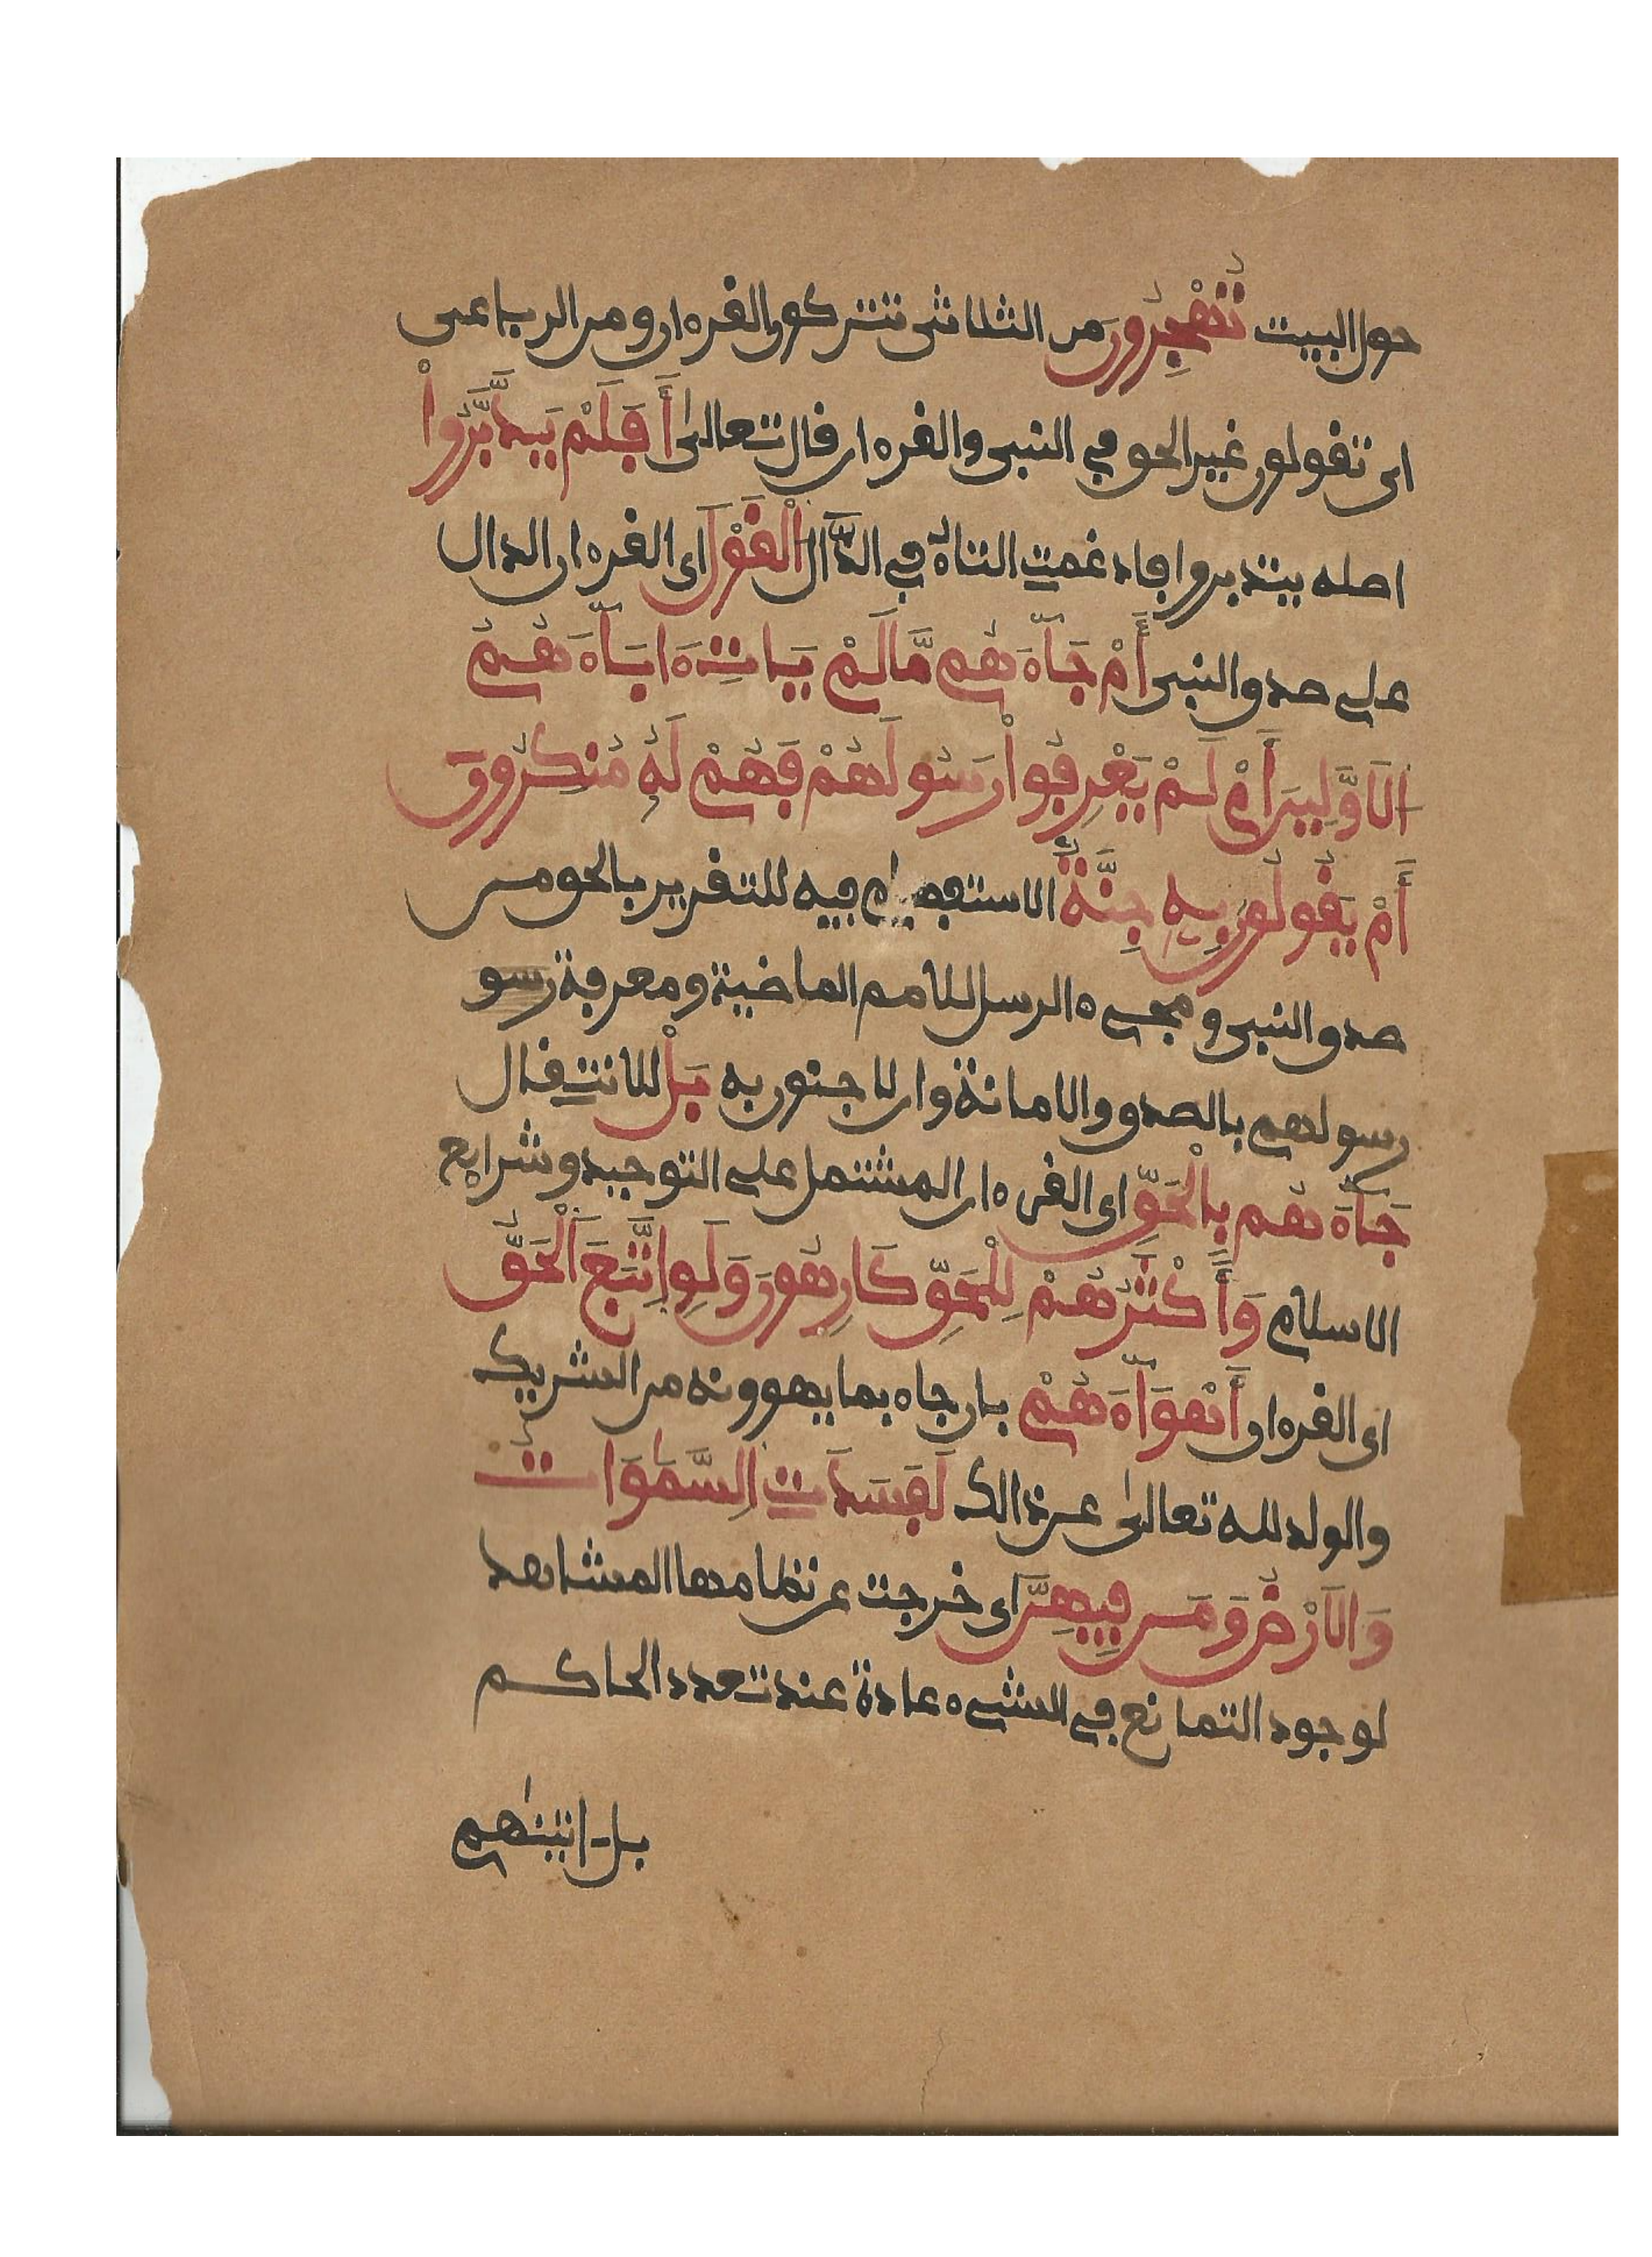 حول البيت تَهْجُرُونَ من الثلاثى تتركون القرءان ومن الرباعى
اى تقولون غير الحق في النبى والقرءان قال تعالىٰ أَفَلَمْ يَدَّبَّرُواْ
اصله يتدبروا فادغمت التاء في الدَّال الْقَوْلَ اى القرءان الدال
على صدق النبى أَمْ جَآءَهُم مَّا لَمْ يَاتِ ءَابَآءَهُمُ
الَاوَّلِينَ أَمْ لَمْ يَعْرِفُواْ رَسُولَهُمْ فَهُمْ لَهُ مُنكِرُونَ
أَمْ يَقُولُونَ بِهِ جِنَّةٌ الاستفهام فيه للتقرير بالحق من
صدق النبى ومجىء الرسل للامم الماضية ومعرفة رسو
رسولهم بالصدق والامانة وان لا جنون به بَلْ للانتقال
جَآءَهُم بِالْحَقِّ اى القرءان المشتمل على التوحيد وشرايع
الاسلام وَأَكْثَرُهُمْ لِلْحَقِّ كَارِهُونَ وَلَوِ اِتَّبَعَ اَلْحَقُّ
اى القرءان أَهْوَآءَهُمْ بان جاء بما يهوونه من الشريك
والولد لله تعالىٰ عن ذالك لَفَسَدَتِ اِلسَّمَٰوَاتُ
وَالَارْضُ وَمَن فِيهِنَّ اى خرجت عن نظامها المشاهد
لوجود التمانع في الشىء عادة عند تعدد الحاكم
بل اتينٰهم